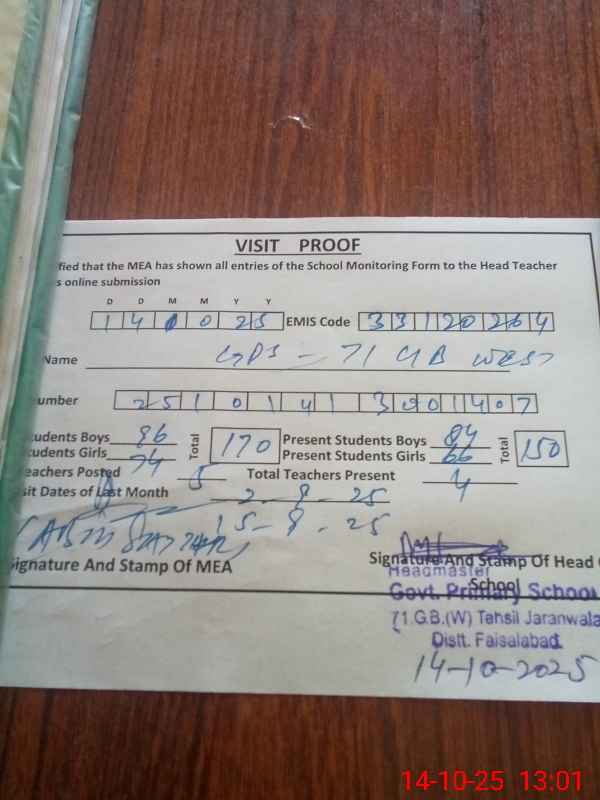 VISIT PROOF
fied that the MEA has shown all entries of the School Monitoring Form to the Head Teacher
s online submission
D D M M Y Y
14 10 25 EMIS Code 33120264
Name GPS - 71 GB WEST
umber 251 0141 3001407
tudents Boys 96 Total 170 Present Students Boys 84 Total 150
tudents Girls 74 Present Students Girls 66
eachers Posted 5 Total Teachers Present 4
sit Dates of Last Month 2-9-25
15-9-25
ignature And Stamp Of MEA Signature And Stamp Of Head
School
Headmaster
Govt. Primary School
71.G.B.(W) Tehsil Jaranwala
Distt. Faisalabad.
14-10-2025
14-10-25 13:01